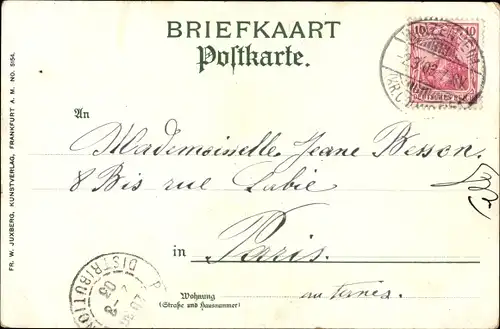 BRIEFKAART
Postkarte.
10 10
An
Mademoiselle Jeane Besson.
8 Bis rue Labie
in Paris.
Wohnung
(Straße und Hausnummer)
au ternes.
DISTRIBUTION
03
FR. W. JUXBERG, KUNSTVERLAG, FRANKFURT A. M. NO. 5154.